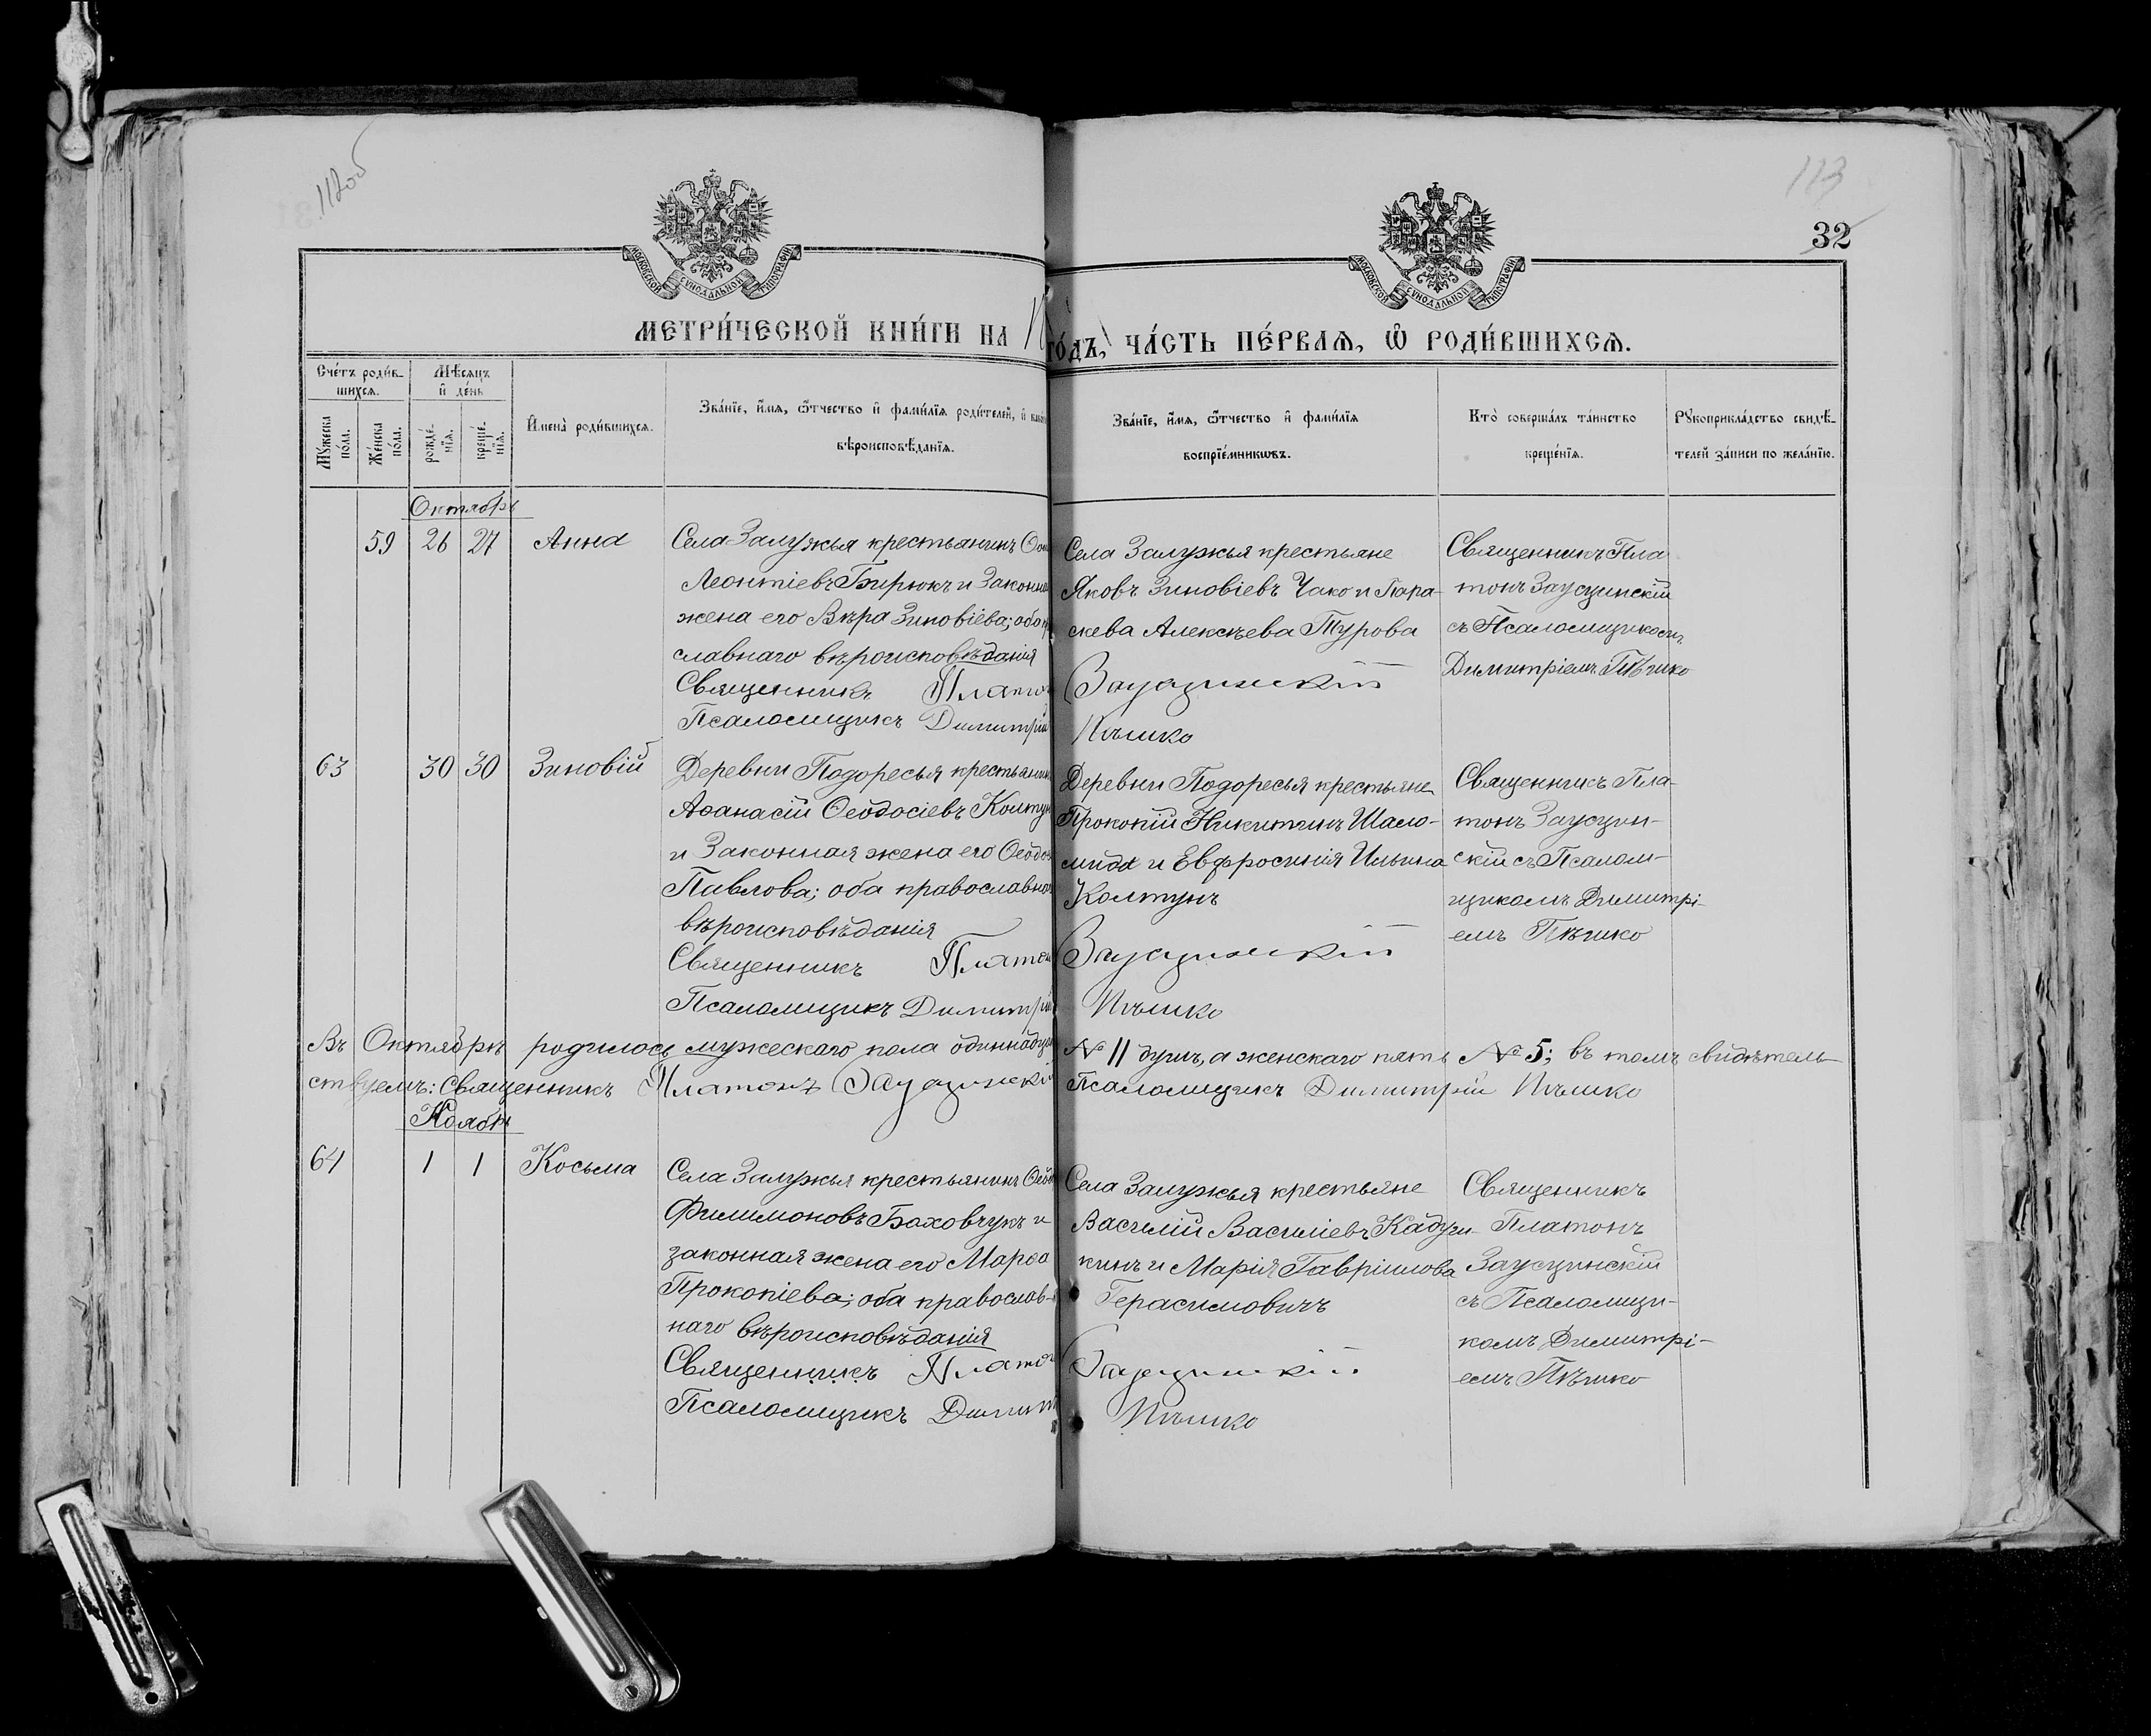 112об
113
32
МОСКОВСКОЙ СУНОДАЛЬНОЙ ТИПОГРАФІИ
МОСКОВСКОЙ СУНОДАЛЬНОЙ ТИПОГРАФІИ
МЕТРИ́ЧЕСКОЙ КНИ́ГИ НА
го́дъ, ЧА́СТЬ ПЕ́РВАѦ, Ѡ҆ РОДИ́ВШИХСѦ.
Сче́тъ роди́в-
шихсѧ.
Мѣ́сѧцъ
и҆ де́нь
Мꙋ́жеска
по́ла.
Же́нска
по́ла.
рожде́-
нїѧ.
креще́-
нїѧ.
И҆мена̀ роди́вшихсѧ.
Зва́нїе, и҆́мѧ, ѻ҆́тчество и҆ фами́лїѧ роди́телей, и҆
вѣроисповѣ́данїѧ.
Зва́нїе, и҆́мѧ, ѻ҆́тчество и҆ фами́лїѧ
воспрїе́мникѡвъ.
Кто̀ соверша́лъ та́инство
креще́нїѧ.
Рꙋкоприкла́дство свидѣ́-
телей за́писи по жела́нїю.
Октябрь
59 26 27 Анна
Села Залужья крестьянинъ
Леонтіевъ Бирюкъ и законная
жена его Вѣра Зиновіева; оба
славнаго вѣроисповѣданія
Священникъ Платонъ
Псаломщикъ Димитрій
Села Залужья крестьяне
Яковъ Зиновіевъ Чако и Пара-
скева Алексѣева Турова
Заусцинскій
Пѣшко
Священникъ Пла
тонъ Заусцинскій
съ Псаломщикомъ
Димитріемъ Пѣшко
63 30 30 Зиновій
Деревни Подоресья крестьянинъ
Аѳанасій Ѳеодосіевъ Колтунъ
и Законная жена его
Павлова; оба православнаго
вѣроисповѣданія
Священникъ Платонъ
Псаломщикъ Димитрій
Деревни Подоресья крестьяне
Прокопій Никитинъ Шало-
мида и Евфросинія Ильина
Колтунъ
Заусцинскій
Пѣшко
Священникъ Пла-
тонъ Заусцин-
скій съ Псалом-
щикомъ Димитрі-
емъ Пѣшко
Въ Октябрѣ родилось мужескаго пола одиннадцать № 11 душъ, а женскаго пять № 5; въ томъ свидѣтель-
ствуемъ: Священникъ Платонъ Заусцинскій Псаломщикъ Димитрій Пѣшко
Ноябрь
64 1 1 Косьма
Села Залужья крестьянинъ
Филимоновъ Баховчукъ и
законная жена его Марѳа
Прокопіева; оба православ-
наго вѣроисповѣданія
Священникъ Платонъ
Псаломщикъ Димит
Села Залужья крестьяне
Василій Василіевъ Кадуч-
кинъ и Марія Гавріилова
Герасимовичъ
Заусцинскій
Пѣшко
Священникъ
Платонъ
Заусцинскій
съ Псаломщи-
комъ Димитрі-
емъ Пѣшко